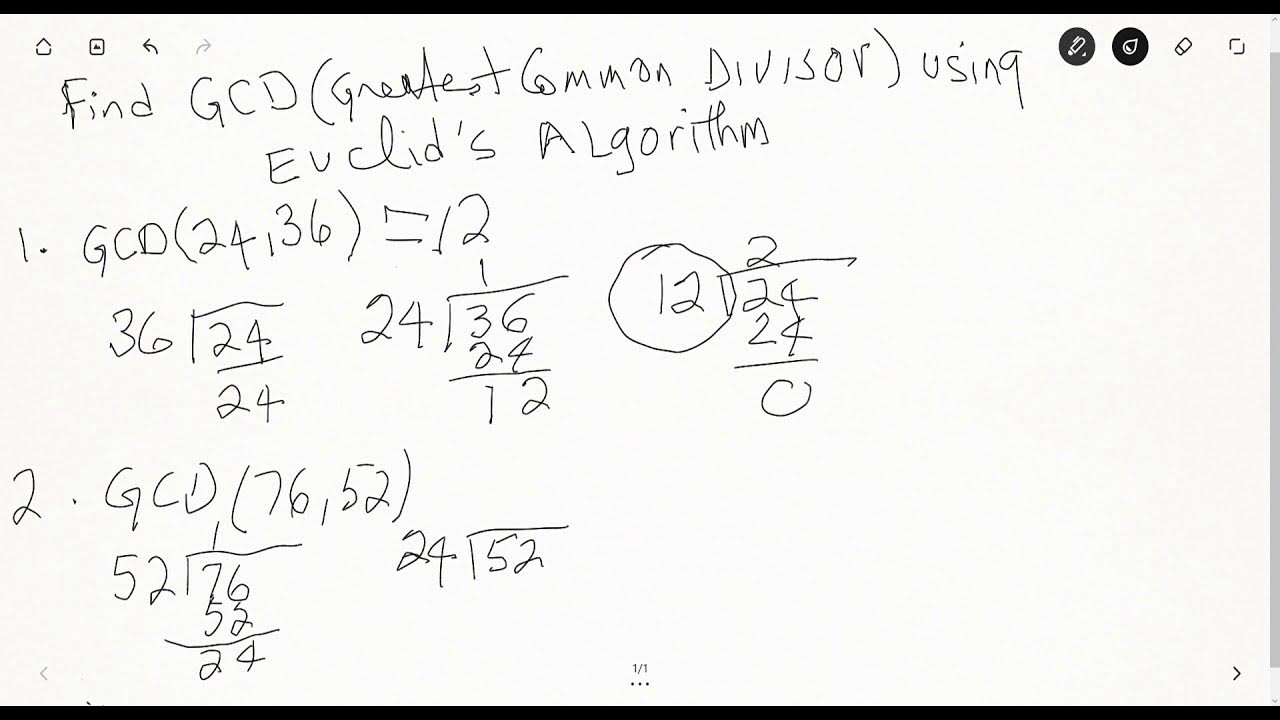 Find GCD (Greatest Common Divisor) using
Euclid's Algorithm
1. GCD(24,36) = 12
1
2
36 24
24 36
12 24
24
24
24
12
0
2. GCD(76,52)
1
52 76
24 52
52
24
1/1